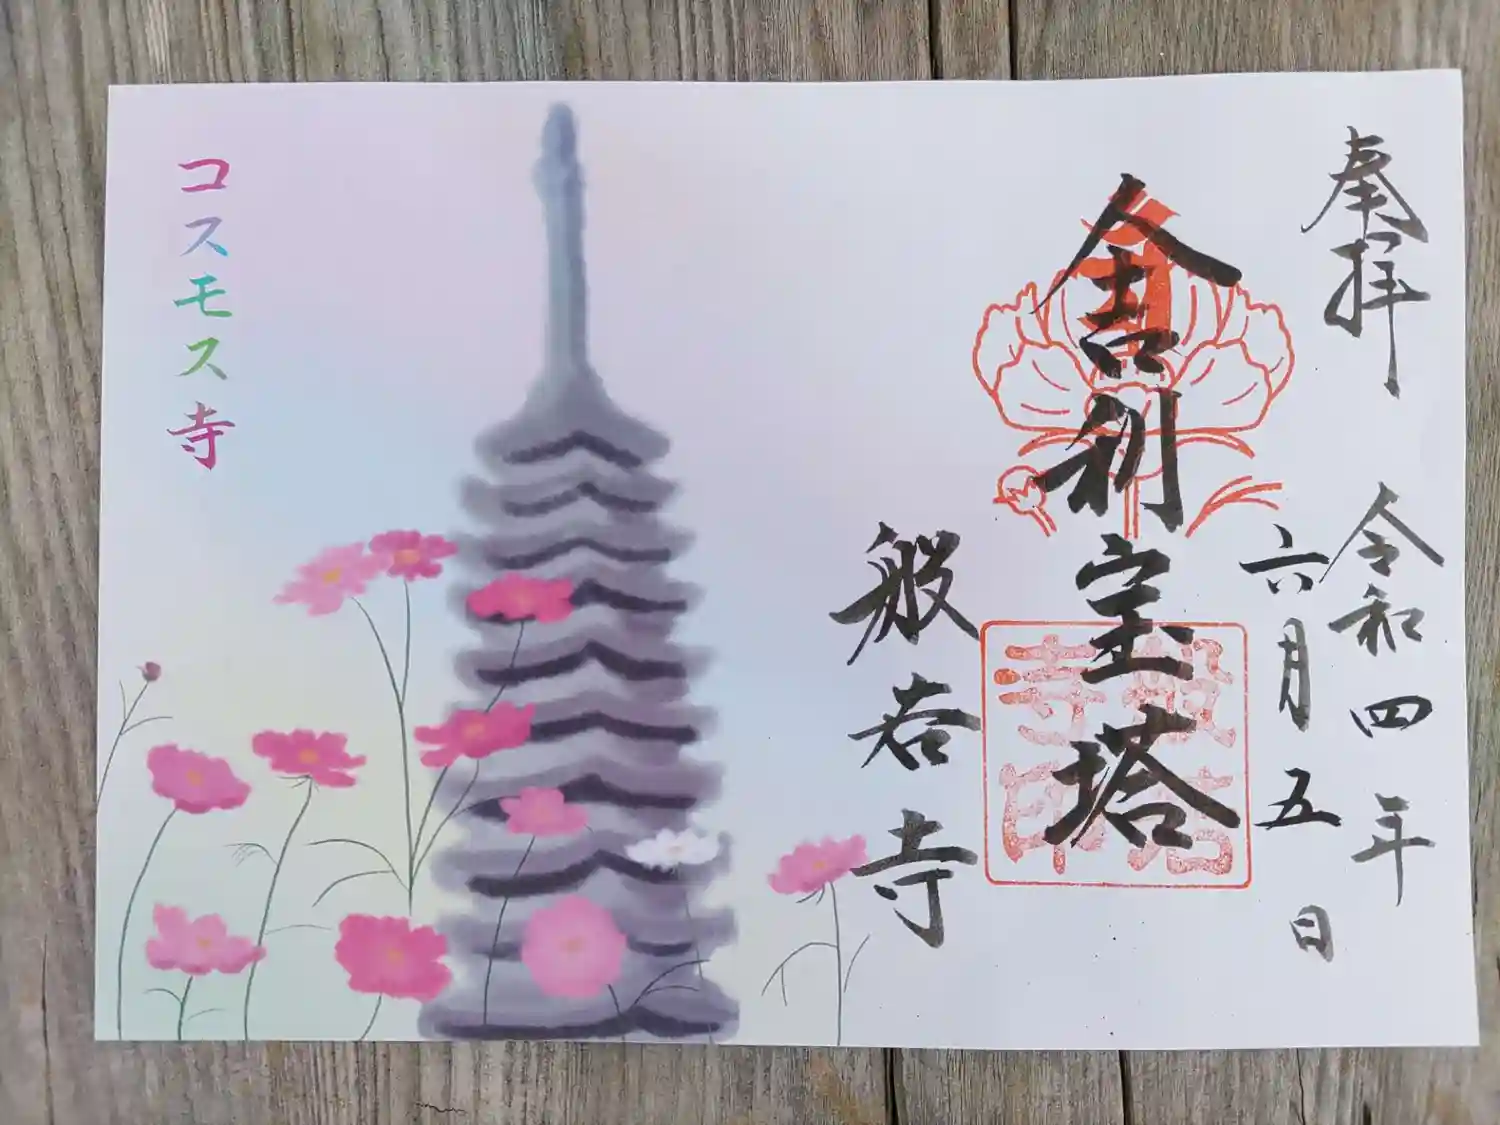 奉拝
令和四年
六月五日
舎利宝塔
般若寺
般若寺印
コスモス寺